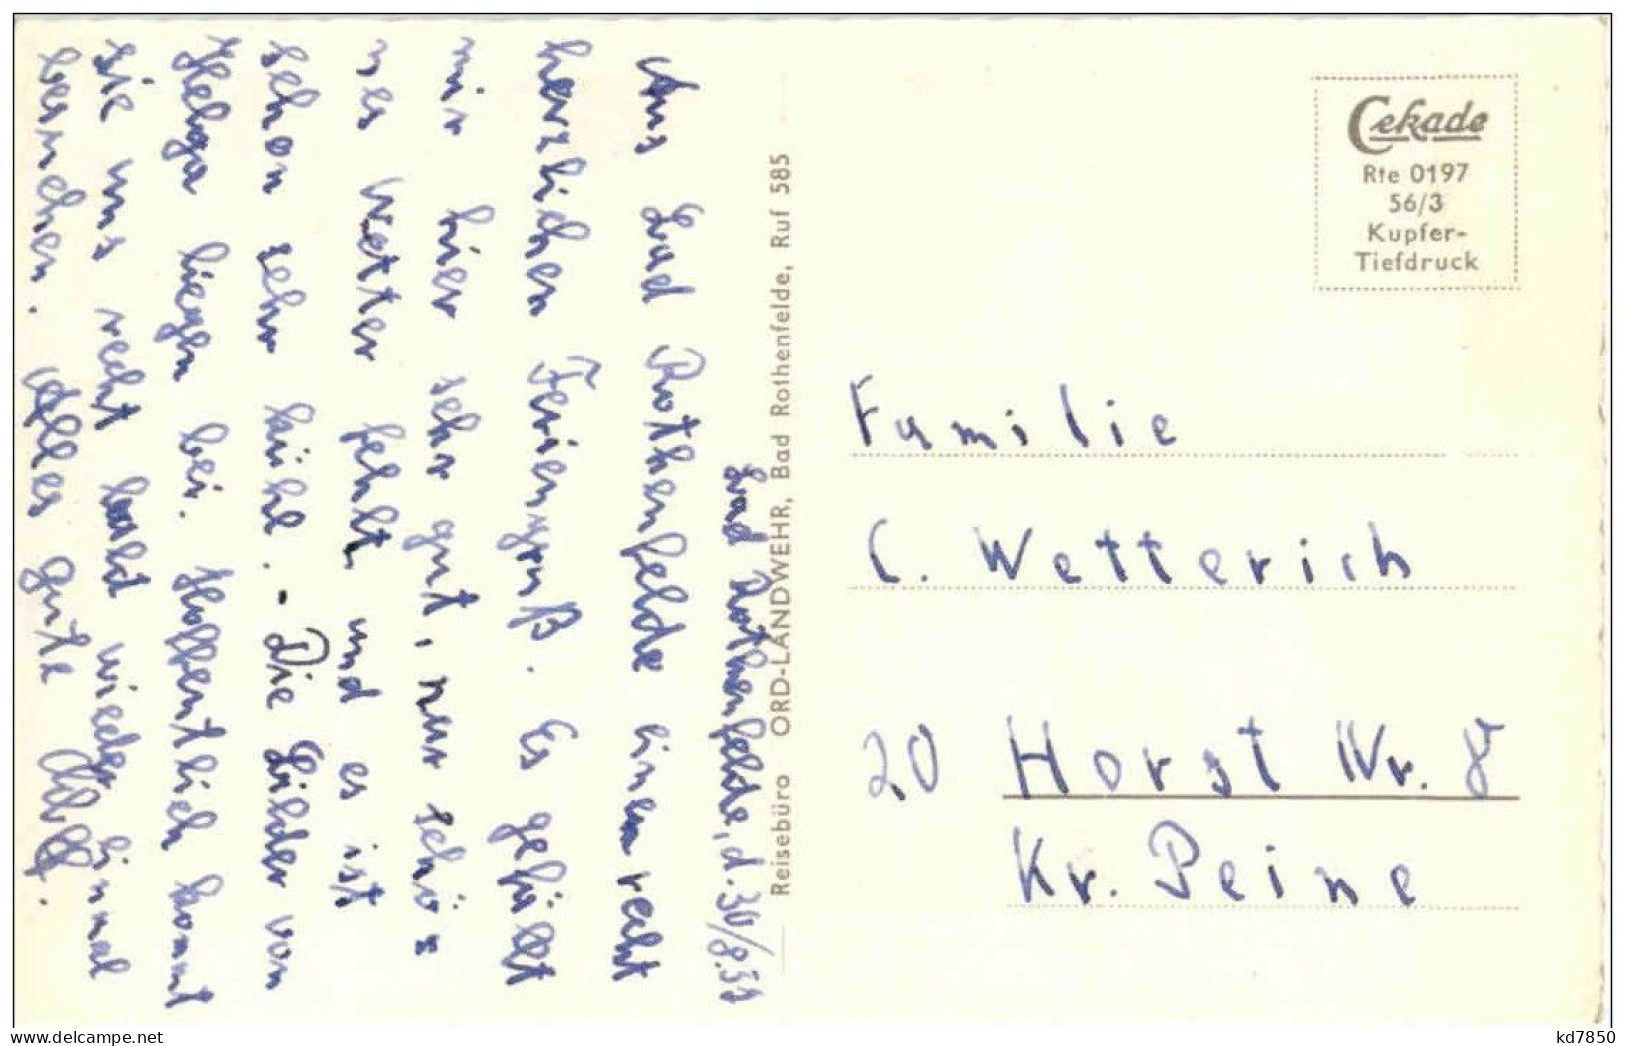 Bad Rothenfelde, d. 30/8.59
Aus Bad Rothenfelde einen recht
herzlichen Feriengruß. Es gefällt
mir hier sehr gut, nur schö-
nes Wetter fehlt und es ist
schon sehr kühl. - Die Bilder von
Helga liegen bei. Hoffentlich kommt
sie uns recht bald wieder einmal
besuchen. Alles gute Adolf.
Reisebüro ORD-LANDWEHR, Bad Rothenfelde, Ruf 585
Cekade
Rte 0197
56/3
Kupfer-
Tiefdruck
Familie
C. Wetterich
20 Horst Nr. 8
Kr. Peine
www.delcampe.net
kd7850